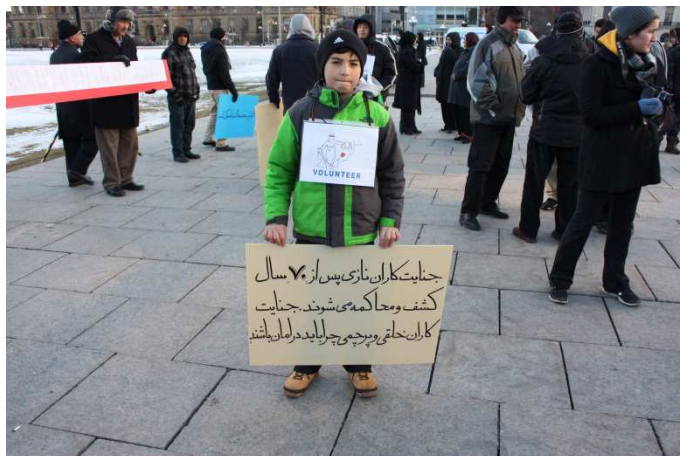 VOLUNTEER
جنایت کاران نازی پس از ۷۰ سال
کشف و محاکمه می شوند. جنایت
کاران خلقی و پرچمی چرا باید در امان باشند